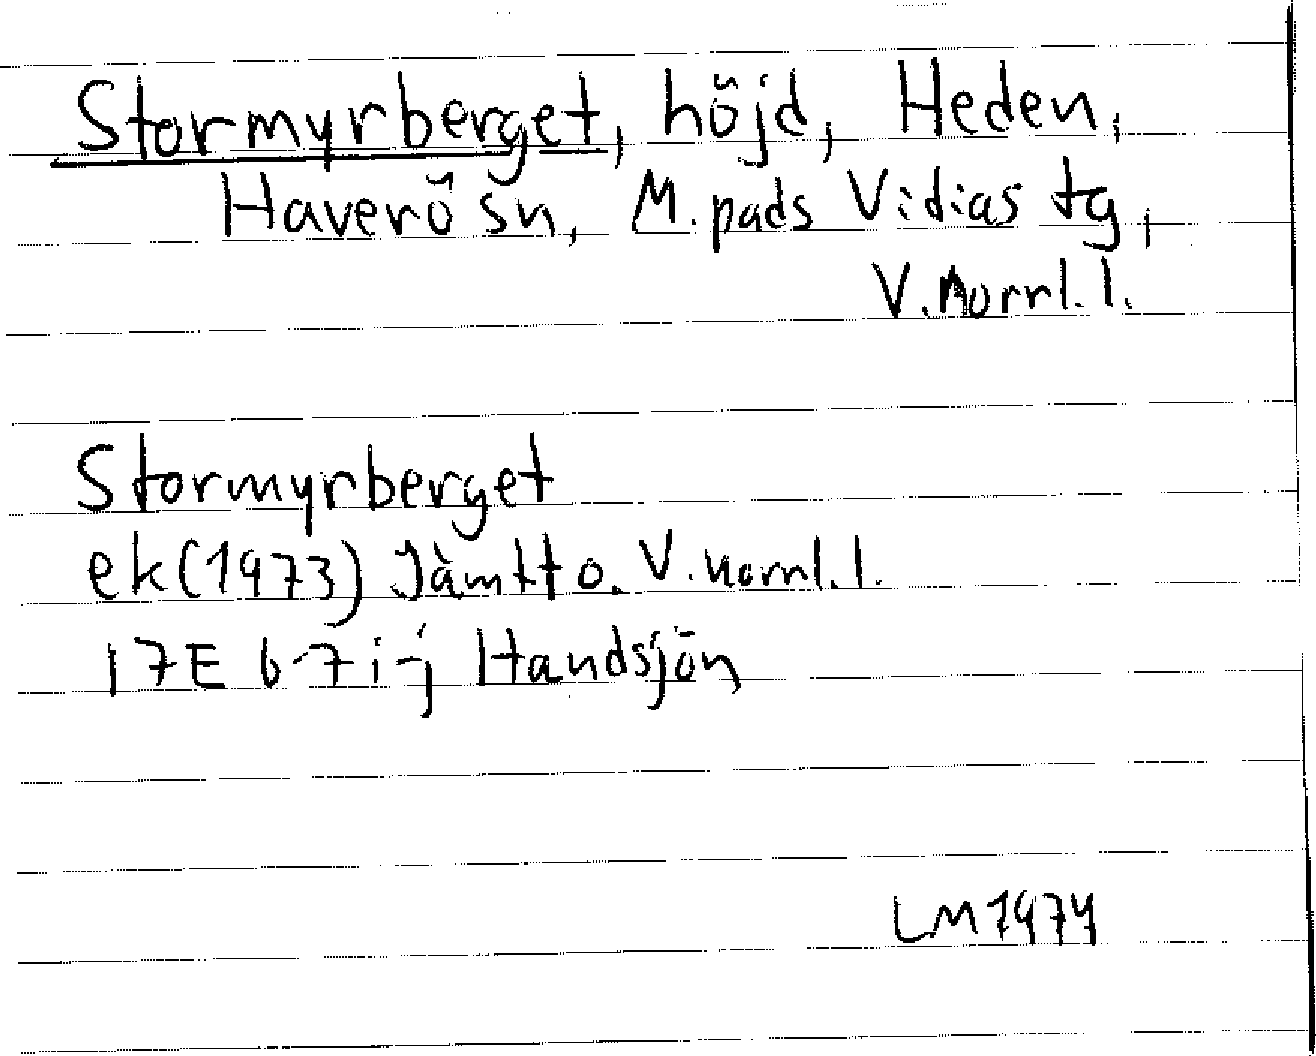 Stormyrberget, höjd, Heden,
Haverö sn, M.pads V:dias tg,
V.Norrl.l.
Stormyrberget
ek(1973) Jämt to. V.norrl.l.
17E 6-7i-j Handsjön
LM1974